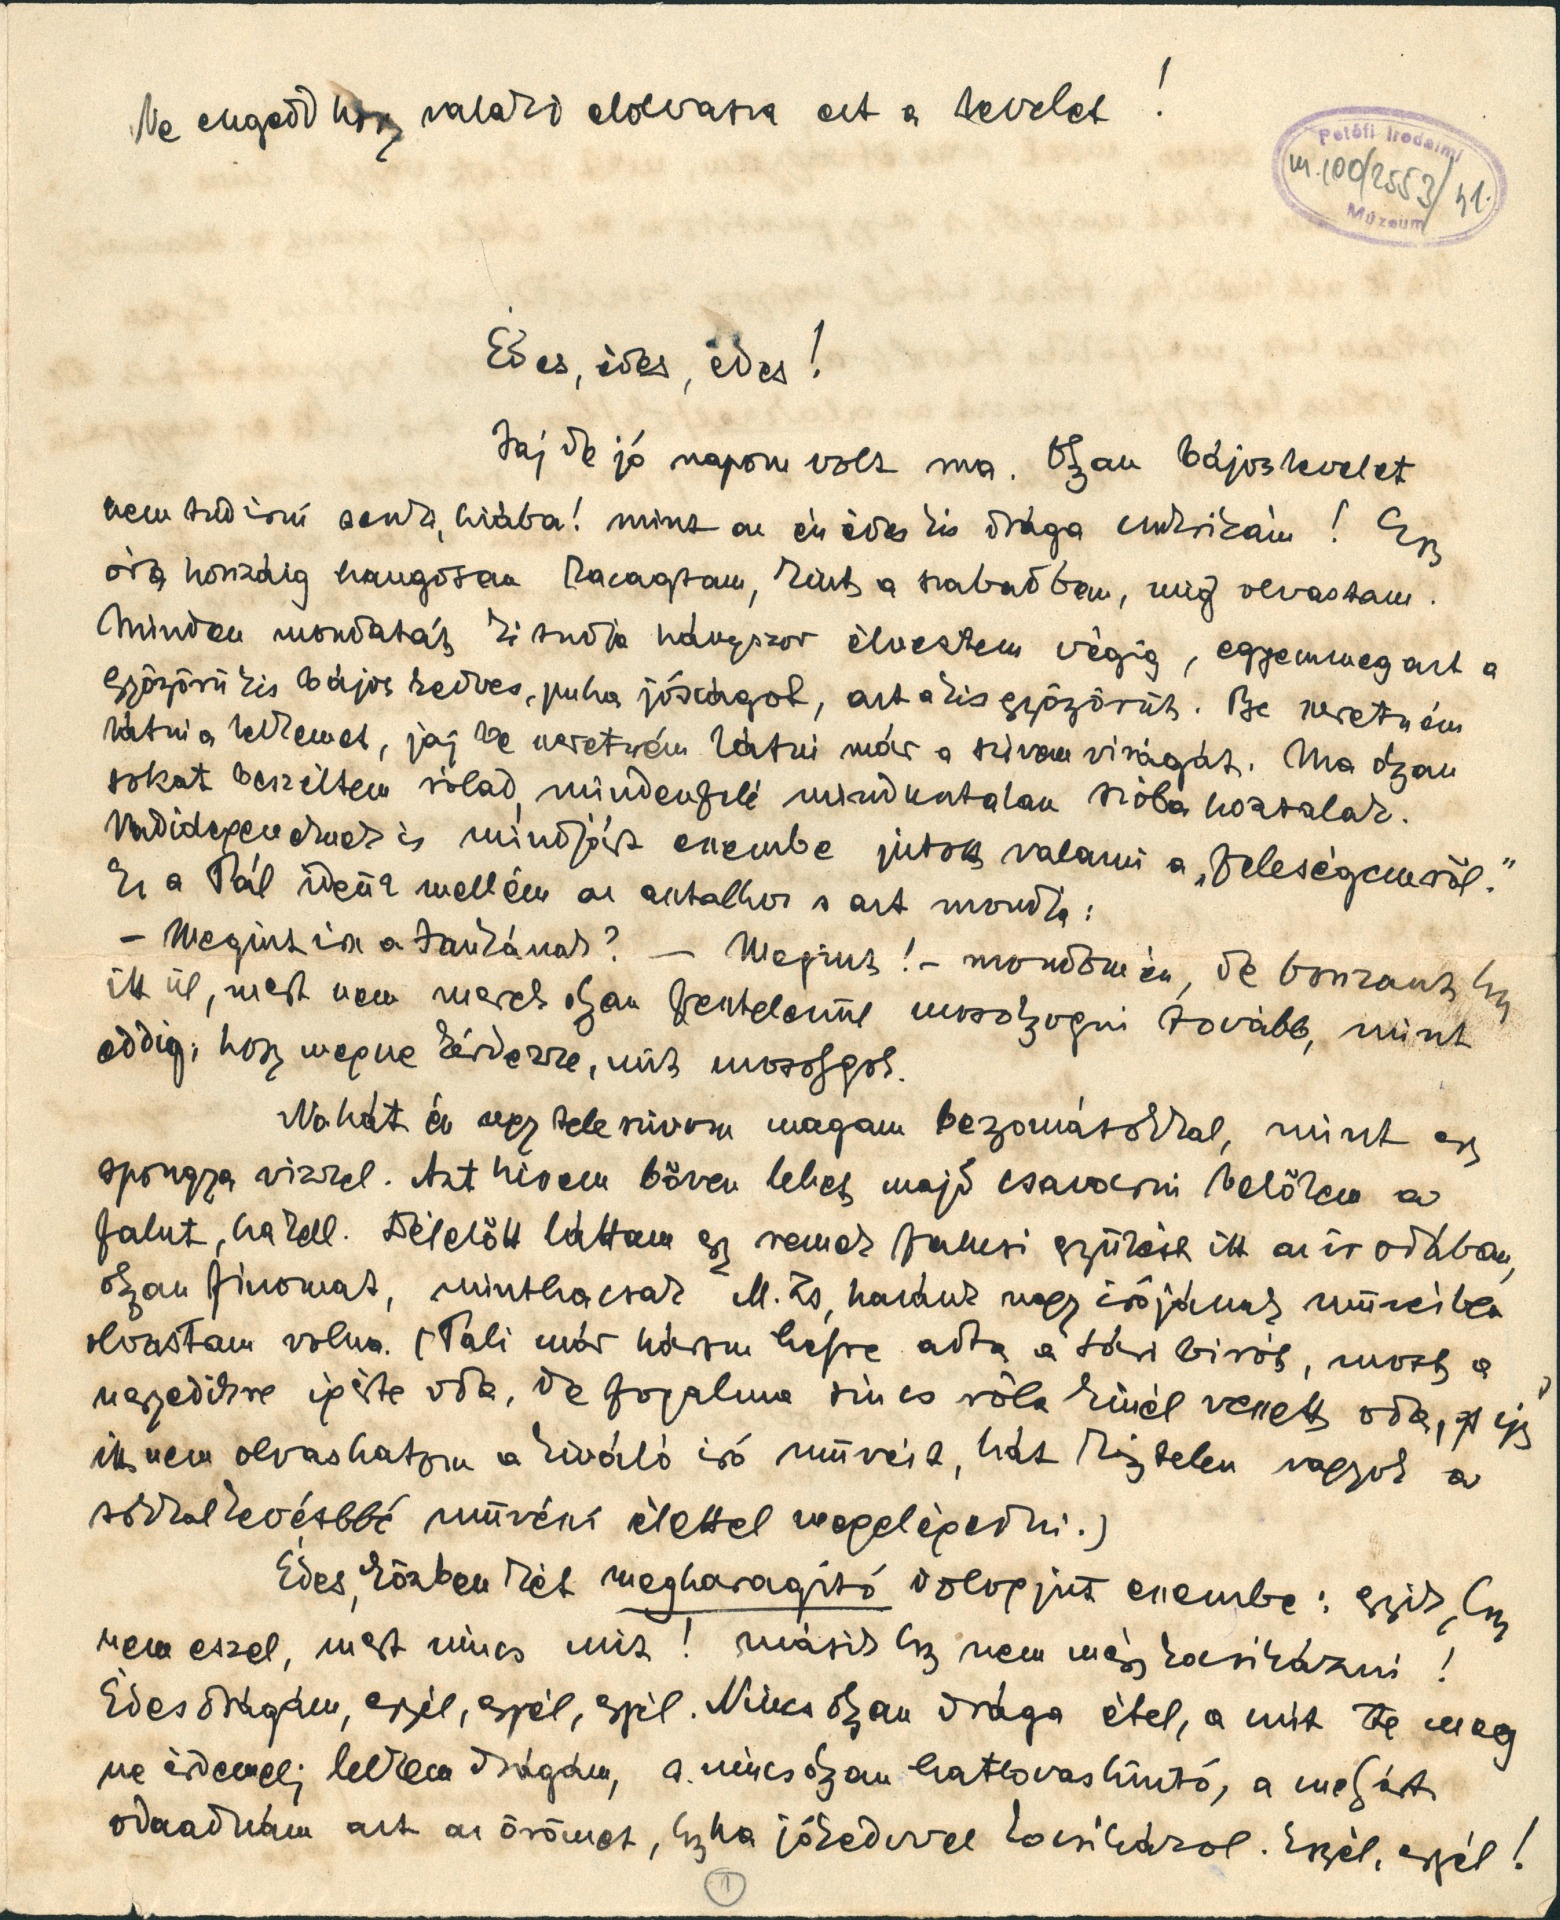 Ne engedd hogy valaki elolvassa ezt a levelet!
Petőfi Irodalmi
m. 100/2553/41.
Múzeum
Édes, édes, édes!
Jaj de jó napom volt ma. Olyan bájos levelet
nem tud irni senki, hiába! mint az én édes kis drága cukrikám! Egy
óra hosszáig hangosan kacagtam, kint a szabadban, mig olvastam.
Minden mondatát ki tudja hányszor élveztem végig, egyem meg azt a
gyönyörü kis bájos kedves, puha jószágot, azt a kis gyönyörüt. Be szeretném
látni a lelkemet, jaj be szeretném látni már a szivem virágát. Ma olyan
sokat beszéltem rólad, mindenfelé minduntalan szóba hoztalak.
Vadidegeneknek is mindjárt eszembe jutott valami a „feleségemről."
Ez a Pál ideül mellém az asztalhoz s azt mondja:
– Megint ir a Jankának? – Megint! – mondom én, de bosszant hogy
itt ül, mert nem merek olyan féktelenül mosolyogni tovább, mint
eddig, hogy meg ne kérdezze, mit mosolygok.
Na hát én ugy tele szivom magam benyomásokkal, mint egy
spongya vizzel. Azt hiszem bőven lehet majd csavarni belőlem a
falut, ha kell. Délelőtt láttam egy remek falusi gyülést itt az irodában,
olyan finomat, mintha csak M. Zs, hazánk nagy irójának müveiben
olvastam volna. (Pali már három helyre adta a Sári birót, most a
negyedikre igérte oda, de fogalma sincs róla kinél veszett oda, s igy
itt nem olvashatom a kiváló iró müveit, hát kénytelen vagyok a
sokkal kevésbbé müvészi élettel megelégedni.)
Édes, közben két megharagitó dolog jut eszembe: egyik, hogy
nem eszel, mert nincs mit! másik hogy nem mégy kocsikázni!
Édes drágám, egyél, egyél, egyél. Nincs olyan drága étel, a mit Te meg
ne érdemelj lelkem drágám, s nincs olyan hatlovas hintó, a melyért
odaadnám azt az örömet, hogy ha jókedvvel kocsikázol. Egyél, egyél!
1